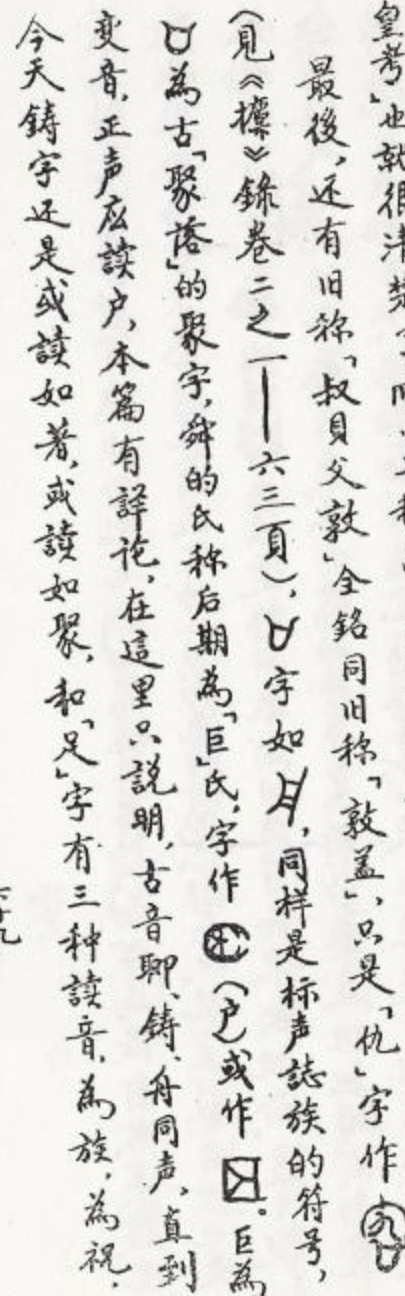 皇考」也就很清楚了
最後，还有旧称「叔䝨父敦」全銘同旧称「敦盖」，只是「仇」字作
（見《攈》錄卷二之一——六三頁），字如，同样是标声誌族的符号，
為古「聚落」的聚字，舜的氏称后期為「巨」氏，字作（戶）或作。巨為
变音，正声应讀户，本篇有詳论，在這里只說明，古音聊、鋳、舟同声，直到
今天鋳字还是或讀如著，或讀如聚，和「足」字有三种讀音，為族，為祝，